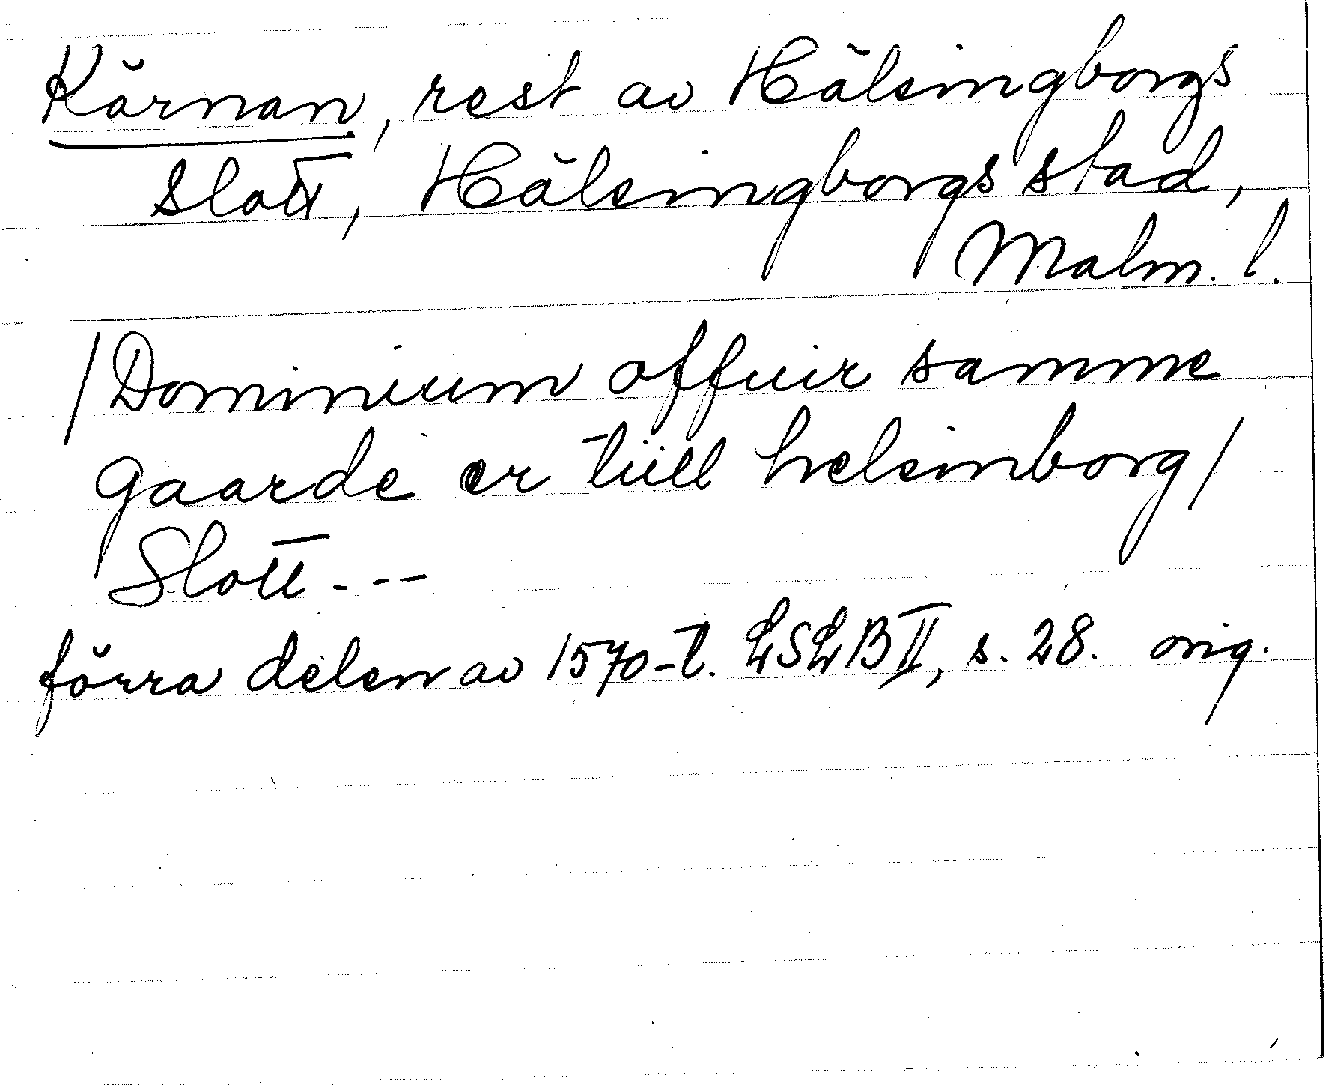 Kärnan, rest av Hälsingborgs
slott, Hälsingborgs stad,
Malm. l.
/Dominium offuir samme
gaarde er tiill helsinborg/
Slott - - -
förra delen av 1570-t. LSLB II, s. 28. orig.